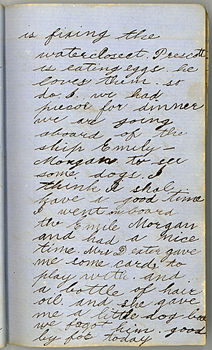 is fixing the
watercloset. Prescott
is eating eggs. he
loves them. so
do I. we had
for dinner
we are going
aboard of the
ship Emily-
Morgan to see
some dogs. I
think I shal
have a good time
I went onboard
the Emile Morgan
and had a nice
time Mrs Dexter gave
me some cards to
play with and
a bottle of hair
oil and she gave
me a little dog
we
him. good
by for today